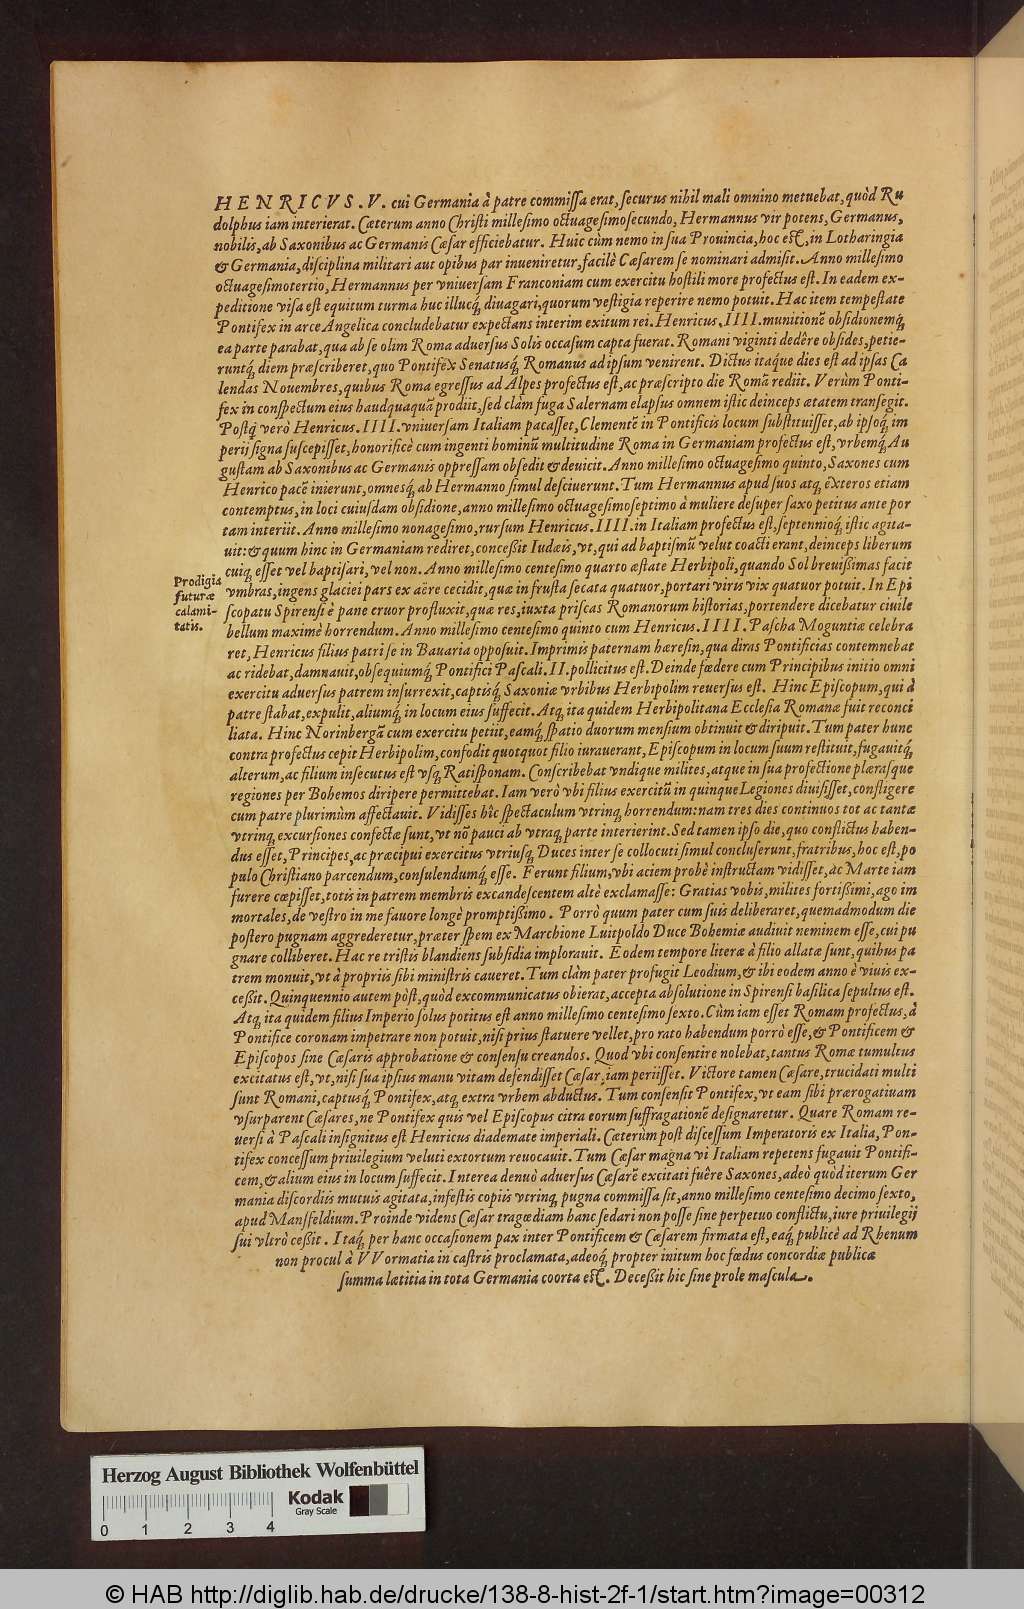 HENRICVS. V. cui Germania à patre commissa erat, securus nihil mali omnino metuebat, quòd Ru
dolphus iam interierat. Cæterum anno Christi millesimo octuagesimosecundo, Hermannus vir potens, Germanus,
nobilis, ab Saxonibus ac Germanis Cæsar efficiebatur. Huic cùm nemo in sua Prouincia, hoc est, in Lotharingia
& Germania, disciplina militari aut opibus par inueniretur, facilè Cæsarem se nominari admisit. Anno millesimo
octuagesimotertio, Hermannus per vniuersam Franconiam cum exercitu hostili more profectus est. In eadem ex-
peditione visa est equitum turma huc illucq́; diuagari, quorum vestigia reperire nemo potuit. Hac item tempestate
Pontifex in arce Angelica concludebatur expectans interim exitum rei. Henricus. IIII. munitionẽ obsidionemq́;
ea parte parabat, qua ab se olim Roma aduersus Solis occasum capta fuerat. Romani viginti dedêre obsides, petie-
runtq́; diem præscriberet, quo Pontifex Senatusq́; Romanus ad ipsum venirent. Dictus itaque dies est ad ipsas Ca
lendas Nouembres, quibus Roma egressus ad Alpes profectus est, ac præscripto die Romã rediit. Verùm Ponti-
fex in conspectum eius haudquaquã prodiit, sed clàm fuga Salernam elapsus omnem istic deinceps ætatem transegit.
Postq̃ verò Henricus. IIII. vniuersam Italiam pacasset, Clementẽ in Pontificis locum substituisset, ab ipsoq́; im
perij signa suscepisset, honorificè cum ingenti hominũ multitudine Roma in Germaniam profectus est, vrbemq́; Au
gustam ab Saxonibus ac Germanis oppressam obsedit & deuicit. Anno millesimo octuagesimo quinto, Saxones cum
Henrico pacẽ inierunt, omnesq́; ab Hermanno simul desciuerunt. Tum Hermannus apud suos atq; exteros etiam
contemptus, in loci cuiusdam obsidione, anno millesimo octuagesimoseptimo à muliere desuper saxo petitus ante por
tam interiit. Anno millesimo nonagesimo, rursum Henricus. IIII. in Italiam profectus est, septennioq́; istic agita-
uit: & quum hinc in Germaniam rediret, conceßit Iudæis, vt, qui ad baptismũ velut coacti erant, deinceps liberum
cuiq; esset vel baptisari, vel non. Anno millesimo centesimo quarto æstate Herbipoli, quando Sol breuißimas facit
vmbras, ingens glaciei pars ex aëre cecidit, quæ in frusta secata quatuor, portari viris vix quatuor potuit. In Epi
Prodigia
futuræ
calami-
tatis.
scopatu Spirensi è pane cruor profluxit, quæ res, iuxta priscas Romanorum historias, portendere dicebatur ciuile
bellum maximè horrendum. Anno millesimo centesimo quinto cum Henricus. IIII. Pascha Moguntiæ celebra
ret, Henricus filius patri se in Bauaria opposuit. Imprimis paternam hæresin, qua diras Pontificias contemnebat
ac ridebat, damnauit, obsequiumq́; Pontifici Pascali. II. pollicitus est. Deinde fœdere cum Principibus initio omni
exercitu aduersus patrem insurrexit, captisq́; Saxoniæ vrbibus Herbipolim reuersus est. Hinc Episcopum, qui à
patre stabat, expulit, aliumq́; in locum eius suffecit. Atq; ita quidem Herbipolitana Ecclesia Romanæ fuit reconci
liata. Hinc Norinbergã cum exercitu petiit, eamq́; spatio duorum mensium obtinuit & diripuit. Tum pater hunc
contra profectus cepit Herbipolim, confodit quotquot filio iurauerant, Episcopum in locum suum restituit, fugauitq́;
alterum, ac filium insecutus est vsq; Ratisponam. Conscribebat vndique milites, atque in sua profectione plærasque
regiones per Bohemos diripere permittebat. Iam verò vbi filius exercitũ in quinque Legiones diuisisset, confligere
cum patre plurimùm affectauit. Vidisses hîc spectaculum vtrinq; horrendum: nam tres dies continuos tot ac tantæ
vtrinq; excursiones confectæ sunt, vt nõ pauci ab vtraq; parte interierint. Sed tamen ipso die, quo conflictus haben-
dus esset, Principes, ac præcipui exercitus vtriusq; Duces inter se collocuti simul concluserunt, fratribus, hoc est, po
pulo Christiano parcendum, consulendumq́; esse. Ferunt filium, vbi aciem probè instructam vidisset, ac Marte iam
furere cœpisset, totis in patrem membris excandescentem altè exclamasse: Gratias vobis, milites fortißimi, ago im
mortales, de vestro in me fauore longè promptißimo. Porrò quum pater cum suis deliberaret, quemadmodum die
postero pugnam aggrederetur, præter spem ex Marchione Luitpoldo Duce Bohemiæ audiuit neminem esse, cui pu
gnare colliberet. Hac re tristis blandiens subsidia implorauit. Eodem tempore literæ à filio allatæ sunt, quibus pa
trem monuit, vt à propriis sibi ministris caueret. Tum clàm pater profugit Leodium, & ibi eodem anno è viuis ex-
ceßit. Quinquennio autem pòst, quòd excommunicatus obierat, accepta absolutione in Spirensi basilica sepultus est.
Atq; ita quidem filius Imperio solus potitus est anno millesimo centesimo sexto. Cùm iam esset Romam profectus, à
Pontifice coronam impetrare non potuit, nisi prius statuere vellet, pro rato habendum porrò esse, & Pontificem &
Episcopos sine Cæsaris approbatione & consensu creandos. Quod vbi consentire nolebat, tantus Romæ tumultus
excitatus est, vt, nisi sua ipsius manu vitam defendisset Cæsar, iam periisset. Victore tamen Cæsare, trucidati multi
sunt Romani, captusq́; Pontifex, atq; extra vrbem abductus. Tum consensit Pontifex, vt eam sibi prærogatiuam
vsurparent Cæsares, ne Pontifex quis vel Episcopus citra eorum suffragationẽ designaretur. Quare Romam re-
uersi à Pascali insignitus est Henricus diademate imperiali. Cæterùm post discessum Imperatoris ex Italia, Pon-
tifex concessum priuilegium veluti extortum reuocauit. Tum Cæsar magna vi Italiam repetens fugauit Pontifi-
cem, & alium eius in locum suffecit. Interea denuò aduersus Cæsarẽ excitati fuêre Saxones, adeò quòd iterum Ger
mania discordiis mutuis agitata, infestis copiis vtrinq; pugna commissa sit, anno millesimo centesimo decimo sexto,
apud Mansfeldium. Proinde videns Cæsar tragœdiam hanc sedari non posse sine perpetuo conflictu, iure priuilegij
sui vltrò ceßit. Itaq́; per hanc occasionem pax inter Pontificem & Cæsarem firmata est, eaq́; publicè ad Rhenum
non procul à VVormatia in castris proclamata, adeoq́; propter initum hoc fœdus concordiæ publicæ
summa lætitia in tota Germania coorta est. Deceßit hic sine prole mascula.
Herzog August Bibliothek Wolfenbüttel
Kodak
Gray Scale
0 1 2 3 4
© HAB http://diglib.hab.de/drucke/138-8-hist-2f-1/start.htm?image=00312